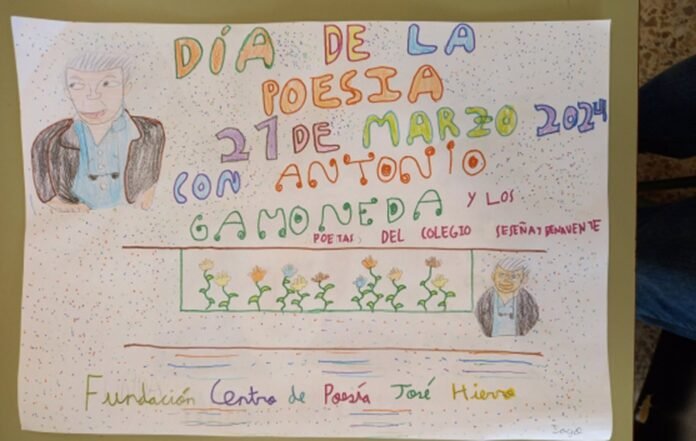 DÍA DE LA
POESIA
21 DE MARZO 2024
CON ANTONIO
GAMONEDA Y LOS
POETAS, DEL COLEGIO SESEÑA Y BENAVENTE
Fundación Centro de Poesía José Hierro